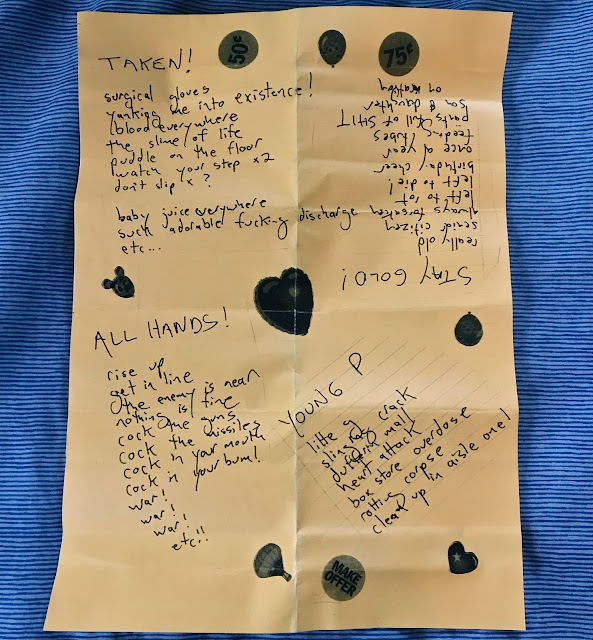 50¢
75¢
TAKEN!
surgical gloves
yanking me into existence!
blood everywhere
the slime of life
puddle on the floor
watch your step x2
don't slip x ?
baby juice everywhere
such adorable fucking discharge
etc...
STAY GOLD!
really old
senior citizen
always forsaken
left to rot
left to die!
birthday cheer
once a year
feeding tubes
pants full of SHIT
son & daughter
on
ALL HANDS!
rise up
get in line
the enemy is near
nothing is fine
cock the guns
cock the missiles
cock in your mouth
cock in your bum!
war!
war!
war!
etc!!
YOUNG P
little g
slinging crack
dufferin mall
heart attack
box store overdose
rotting corpse
clean up in aisle one!
MAKE
OFFER